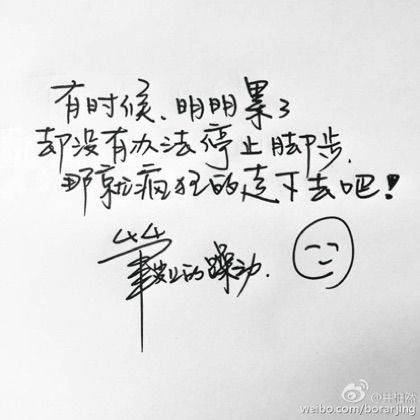 有时候、明明累了
却没有办法停止脚步.
那就疯狂的走下去吧!
的躁动.
weibo.com/borarjing